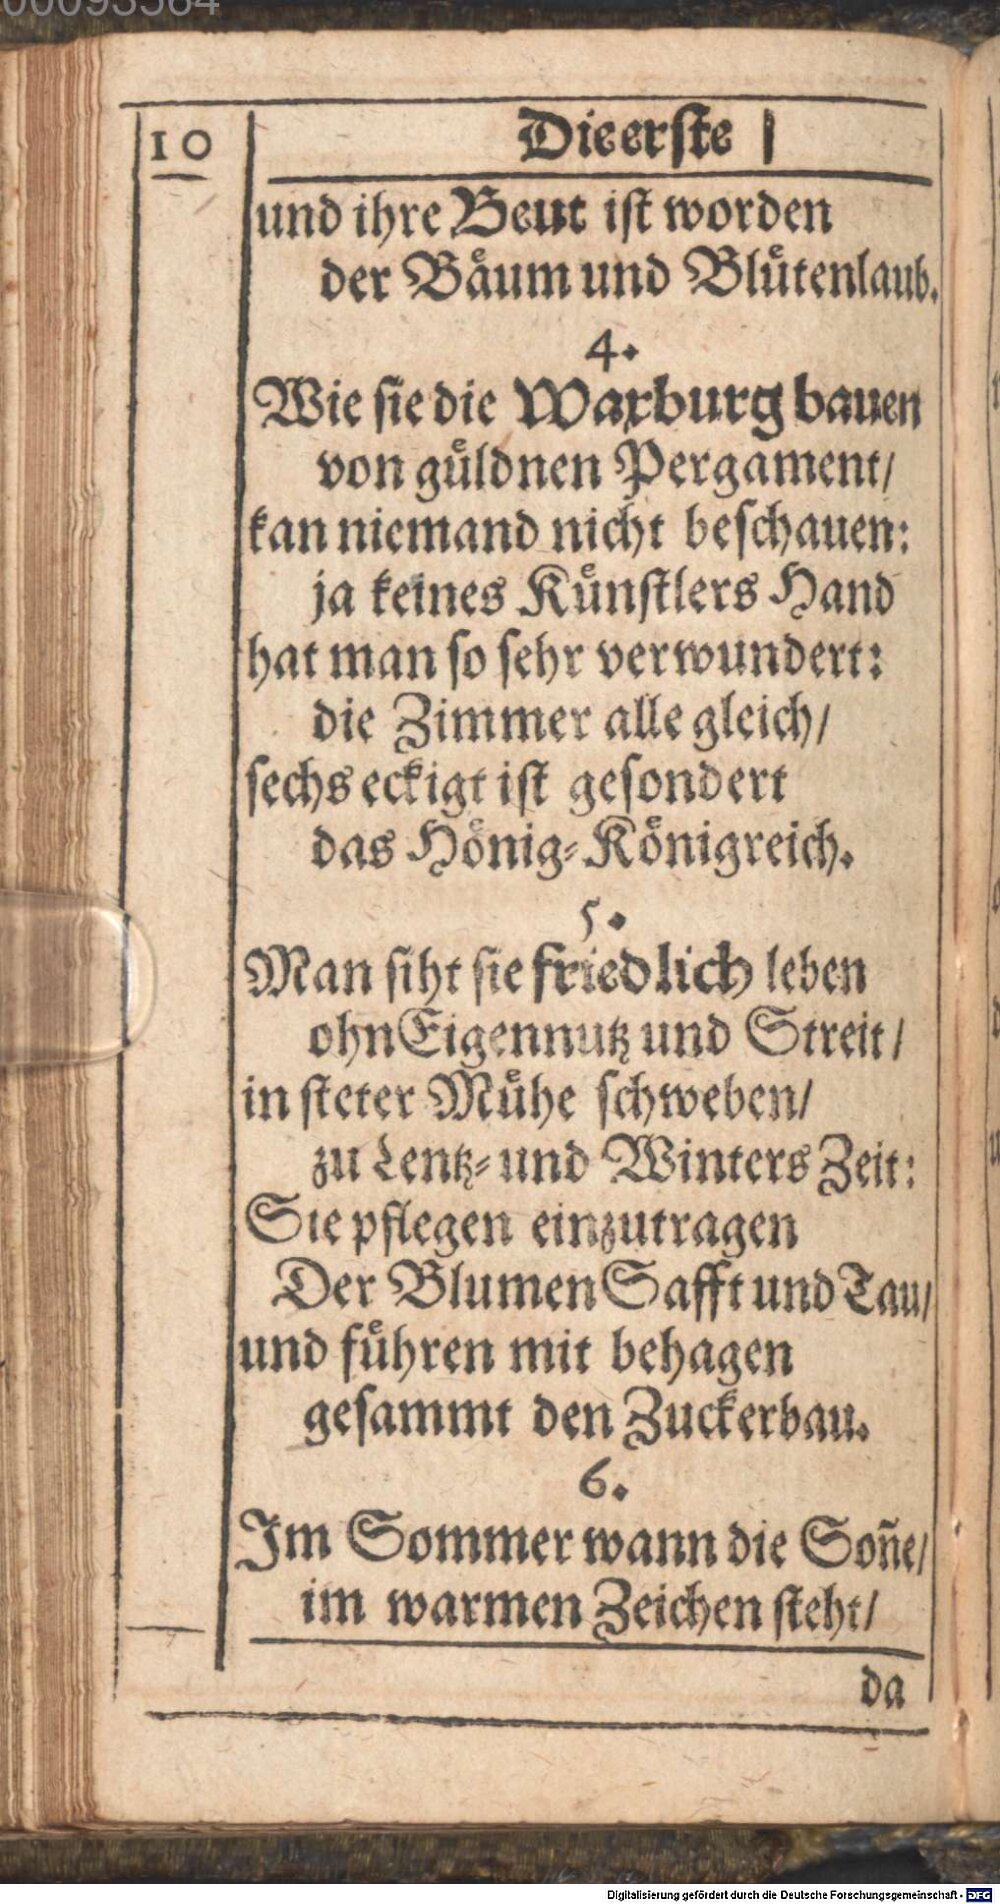 00093564
10
Die erste
und ihre Beut ist worden
der Baͤum und Bluͤtenlaub.
4.
Wie sie die Waxburg bauen
von guͤldnen Pergament/
kan niemand nicht beschauen:
ja keines Kuͤnstlers Hand
hat man so sehr verwundert:
die Zimmer alle gleich/
sechs eckigt ist gesondert
das Hoͤnig-Koͤnigreich.
5.
Man siht sie friedlich leben
ohn Eigennutz und Streit/
in steter Muͤhe schweben/
zu Lentz- und Winters Zeit:
Sie pflegen einzutragen
Der Blumen Safft und Tau/
und fuͤhren mit behagen
gesammt den Zuckerbau.
6.
Im Sommer wann die Soñe/
im warmen Zeichen steht/
da
Digitalisierung gefördert durch die Deutsche Forschungsgemeinschaft - DFG